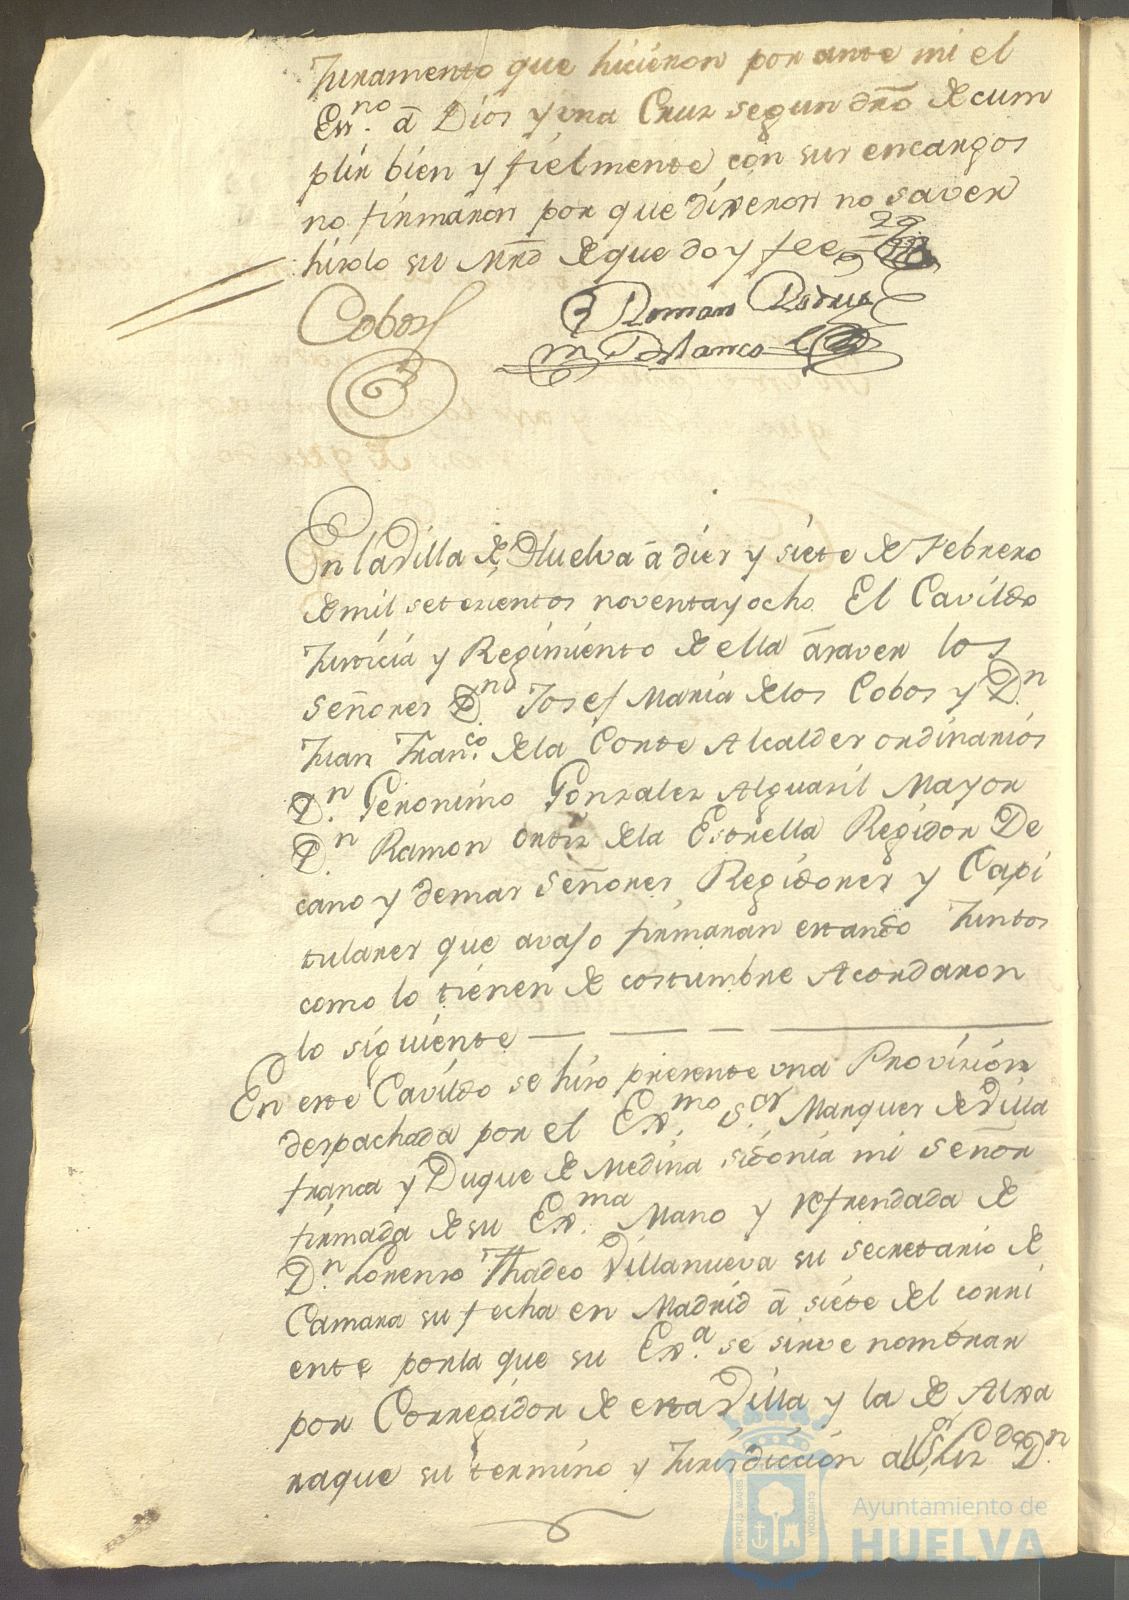 Juramento que hicieron por ante mi el
Esno. a Dios y una Cruz segun dro de cum
plir bien y fielmente con sus encargos
no firmaron por que dixeron no saver
hizolo su Mrd de que doy fee
Cobos
Roman
En la Villa de Huelva a diez y siete de Febrero
de mil setecientos noventa y ocho El Cavildo
Justicia y Regimiento de ella a saver los
Señores Dn. Josef Maria de los Cobos y Dn.
Juan Franco. de la Corte Alcaldes ordinarios
Dn. Geronimo Gonzales Alguasil Mayor
Dn. Ramon Ortiz de la Estrella Regidor De
cano y demas Señores Regidores y Capi
tulares que avajo firmaran estando Juntos
como lo tienen de costumbre Acordaron
lo siguiente
En este Cavildo se hizo presente una Provision
despachada por el Exmo. Sor. Marques de Villa
franca y Duque de Medina sidonia mi Señor
firmada de su Exma. Mano y refrendada de
Dn. Lorenzo Thadeo Villanueva su Secretario de
Camara su fecha en Madrid a siete del corri
ente por la que su Exa. se sirve nombrar
por Corregidor de esta Villa y la de Alxa
raque su termino y Jurisdiccion al Dn.
Ayuntamiento de
HUELVA